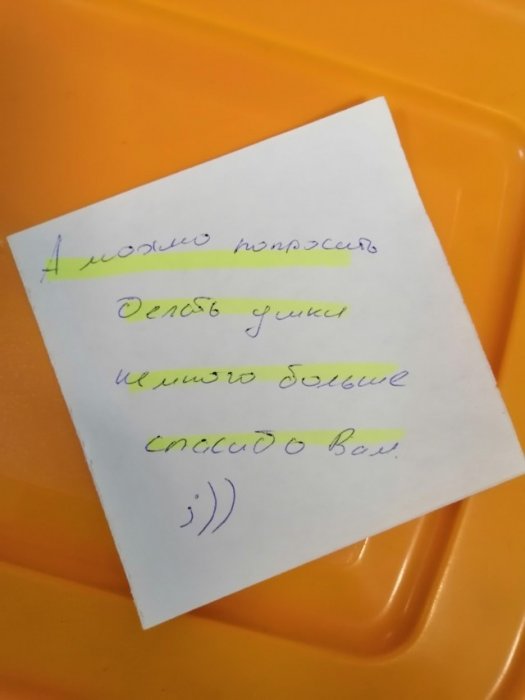 А можно попросить
делать ушки
немного больше
спасибо Вам.
;))